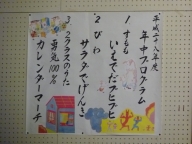 平成二十八年度
年中プログラム
1 すもも
いもでだプヒプヒ
2 びわ
サラダでげんき
3 2クラスのうた
勇気100%
カレンダーマーチ